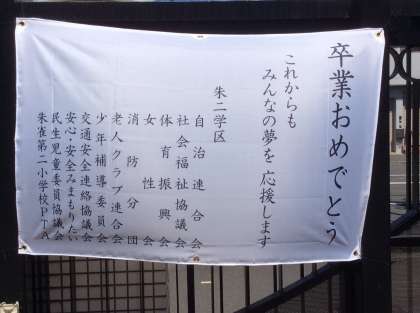 卒業おめでとう
これからも
みんなの夢を応援します
朱二学区
自治連合会
社会福祉協議会
体育振興会
女性会
消防分団
老人クラブ連合会
少年補導委員会
交通安全連絡協議会
安心安全みまもりたい
民生児童委員協議会
朱雀第二小学校PTA